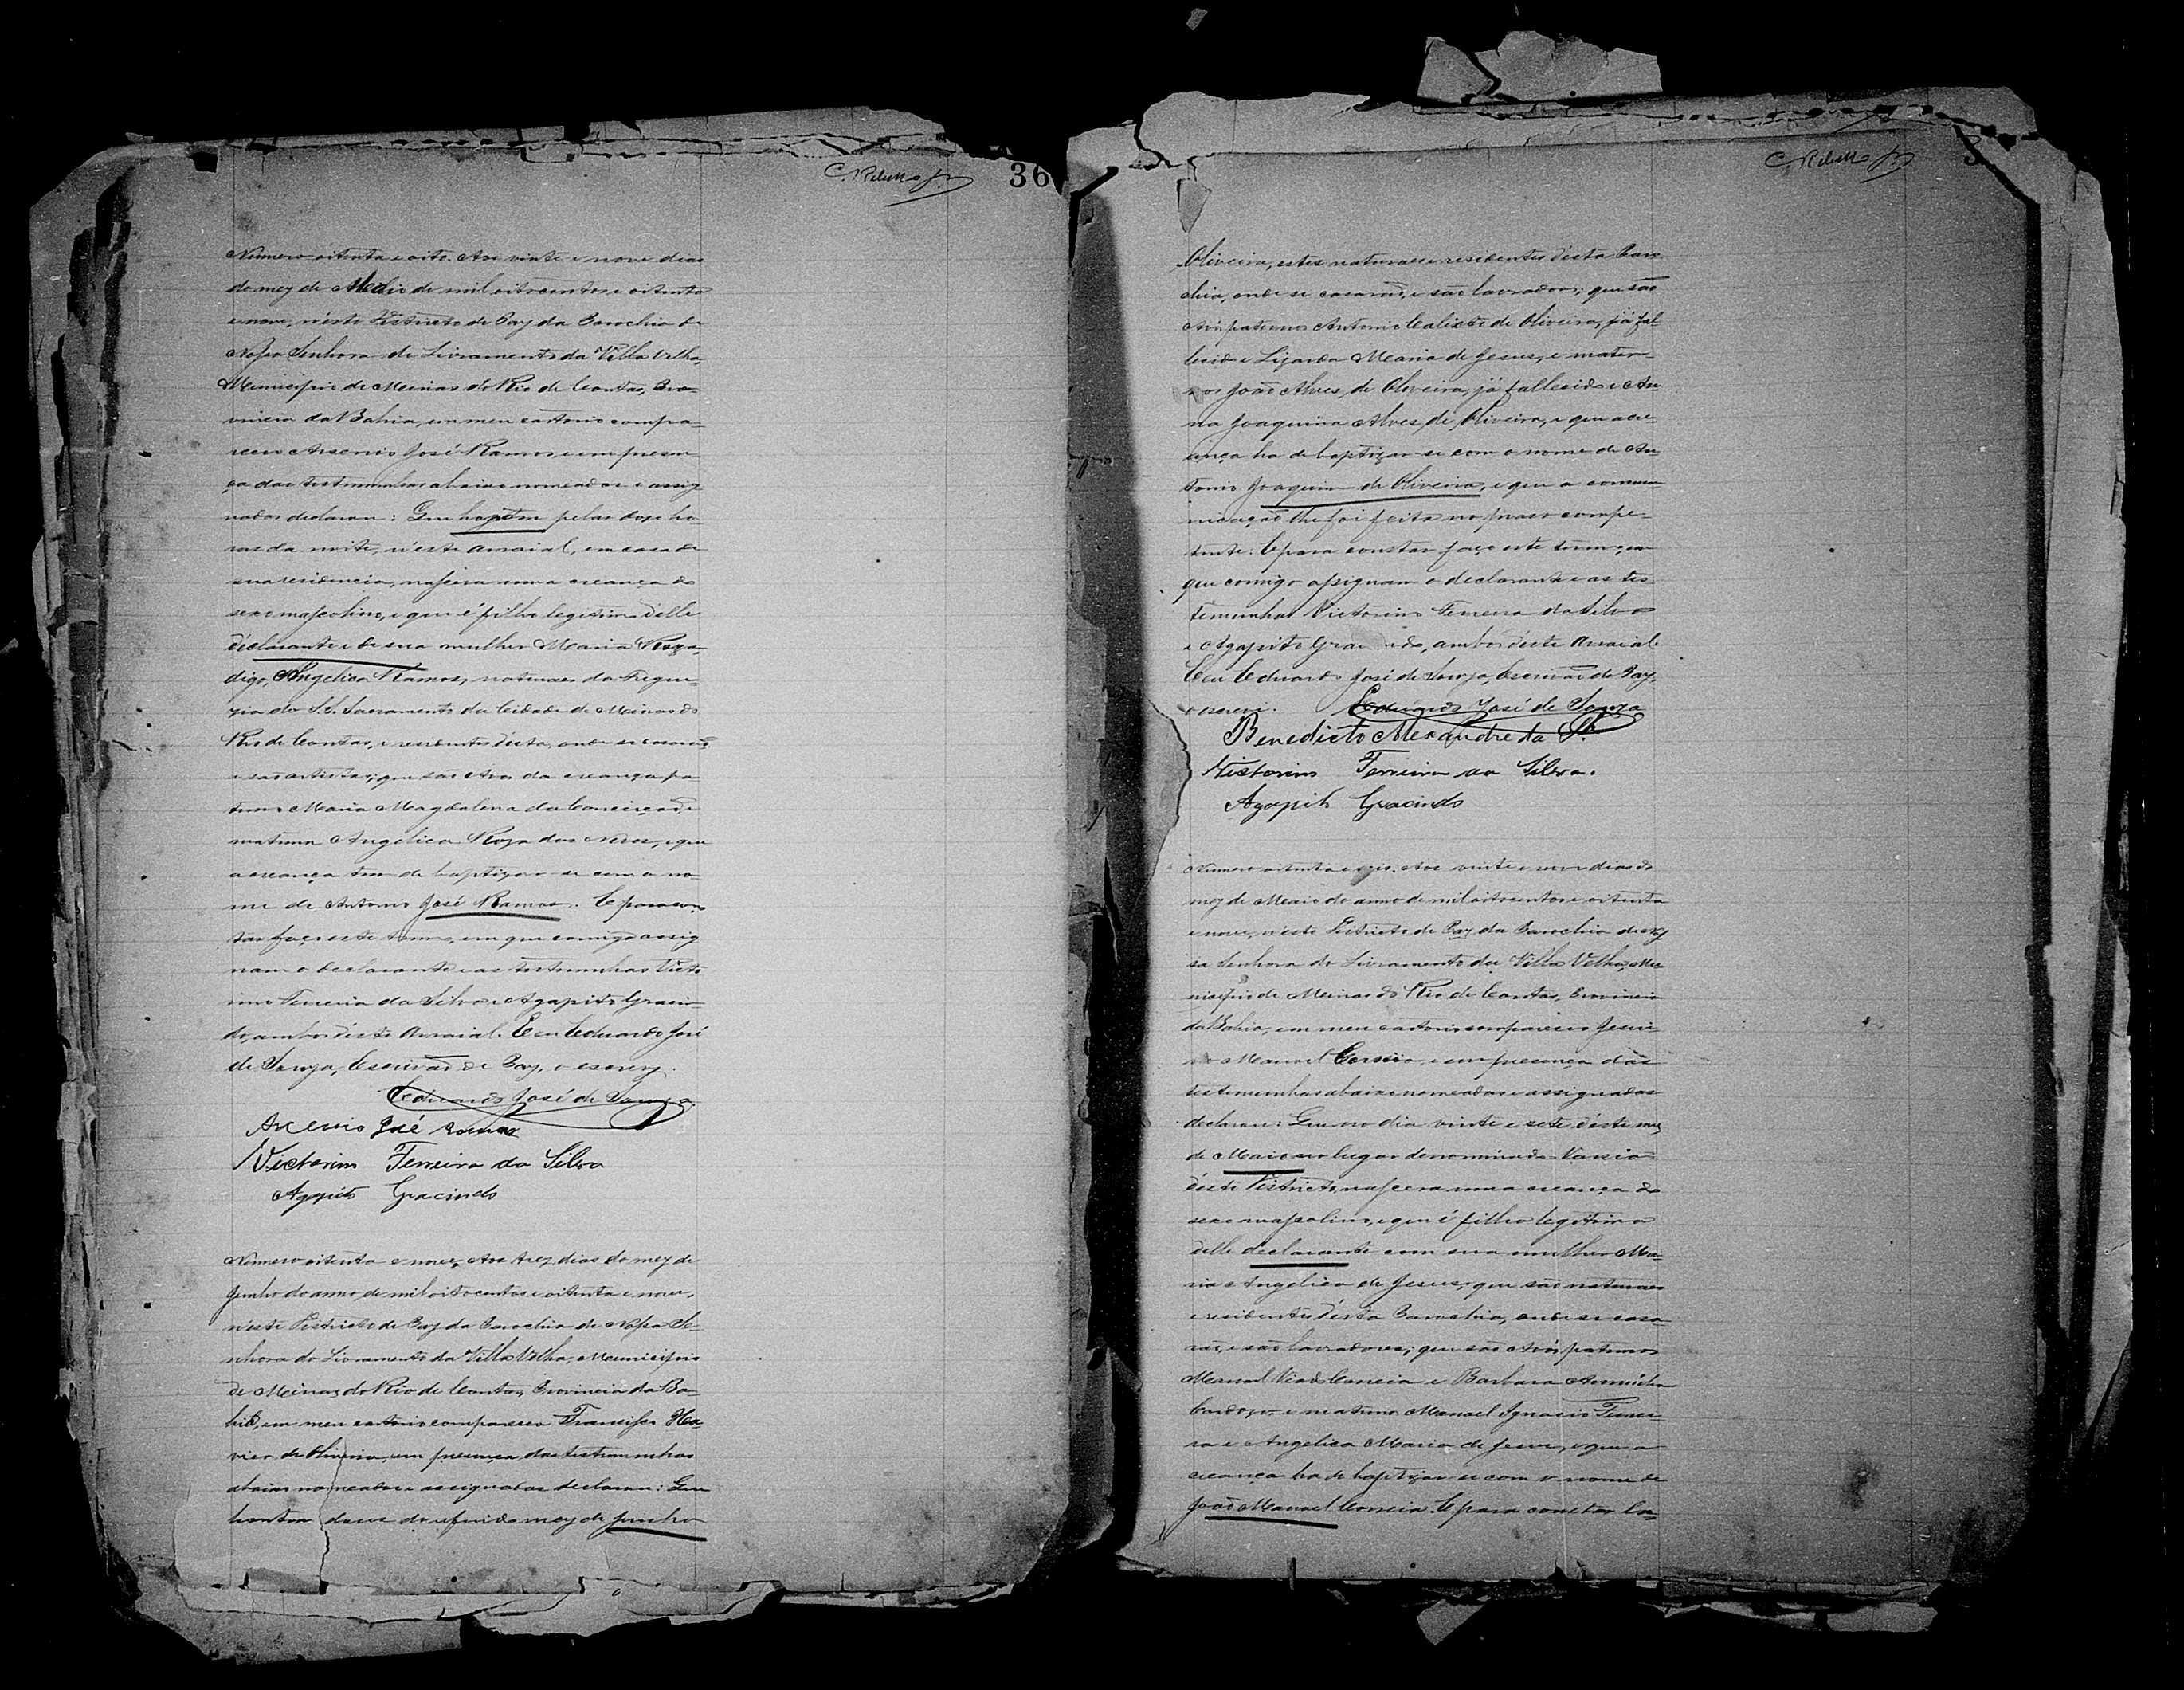 C. Rebello Jr.
36
Numero oitenta e oito. Aos vinte e nove dias
do mez de Maio de mil oitocentos e oitenta
e nove, n'este Districto de Paz da Parochia de
Nossa Senhora do Livramento da Villa Velha,
Municipio de Minas do Rio de Contas, Pro-
vincia da Bahia, em meu cartorio compa-
receu Arsenio José Ramos, e em presen
ça das testemunhas abaixo nomeadas e assig
nadas declarou: Que hontem pelas doze ho-
ras da noite, n'este Arraial, em casa de
sua residencia, nascera uma creança do
sexo masculino, e que é filho legitimo delle
declarante e de sua mulher Maria
Angelica Ramos, naturaes da Fregue-
zia do S.S. Sacramento da Cidade de Minas do
Rio de Contas, e residentes desta, onde se casarão
e são artistas; que são Avós da creança pa
terna Maria Magdalena da Conceição, e
materna Angelica Roza das Neves, e que
a creança tem de baptizar-se com o no-
me de Antonio José Ramos. E para cons
tar faço este termo, em que comigo assig
nam o declarante e as testemunhas Victo
rino Ferreira da Silva e Agapito Gracin-
do, ambos d'este Arraial. E eu Eduardo José
de Souza, Escrivão de Paz, o escrevy.
Eduardo José de Souza
Arcenio José Ramos
Victorino Ferreira da Silva
Agapito Gracindo
Numero oitenta e nove. Aos trez dias do mez de
Junho do anno de mil oitocentos e oitenta e nove,
n'este Districto de Paz da Parochia de Nossa Se-
nhora do Livramento da Villa Velha, Municipio
de Minas do Rio de Contas, Provincia da Ba-
hia, em meu cartorio compareceu Francisco Xa
vier de Oliveira, em presença das testemunhas
abaixo nomeadas e assignadas declarou: Que
hontem do referido mez de Junho
C. Rebello Jr.
Oliveira, estes naturaes e residentes d'esta Paro
chia, onde se casarão, e são lavradores; que são
Avós paternos Antonio Calixto de Oliveira, já fal-
lecido e Lizarda Maria de Jesus, e mater-
nos João Alves de Oliveira, já fallecido e An
na Joaquina Alves de Oliveira, e que a cre
ança ha de baptizar-se com o nome de An
tonio Joaquim de Oliveira, e que a commu
nicação lhe foi feita no praso compe-
tente. E para constar faço este termo, em
que comigo assignam o declarante e as tes
temunhas Victorino Ferreira da Silva
e Agapito Gracindo, ambos d'este Arraial.
E eu Eduardo José de Souza, Escrivão de Paz,
o escrevi. Eduardo José de Souza
Benedicto Alexandre da Sª
Victorino Ferreira da Silva.
Agapito Gracindo
Numero oitenta e seis. Aos vinte e nove dias do
mez de Maio do anno de mil oitocentos e oitenta
e nove, n'este Districto de Paz da Parochia de Nos
sa Senhora do Livramento da Villa Velha, Mu
nicipio de Minas do Rio de Contas, Provincia
da Bahia, em meu cartorio compareceu Jesui-
no Manoel Correia, e em presença das
testemunhas abaixo nomeadas e assignadas
declarou: Que no dia vinte e sete d'este mez
de Maio no lugar denominado
d'este Districto, nascera uma creança do
sexo masculino, e que é filho legitimo
delle declarante com sua mulher Ma-
ria Angelica de Jesus, que são naturaes
e residentes d'esta Parochia, onde se casa
rão, e são lavradores; que são Avós paternos
Manoel Correia e Barbara
Cardozo, e materno Manoel Ignacio Ferrei
ra e Angelica Maria de Jesus, e que a
creança ha de baptizar-se com o nome de
João Manoel Correia. E para constar la-